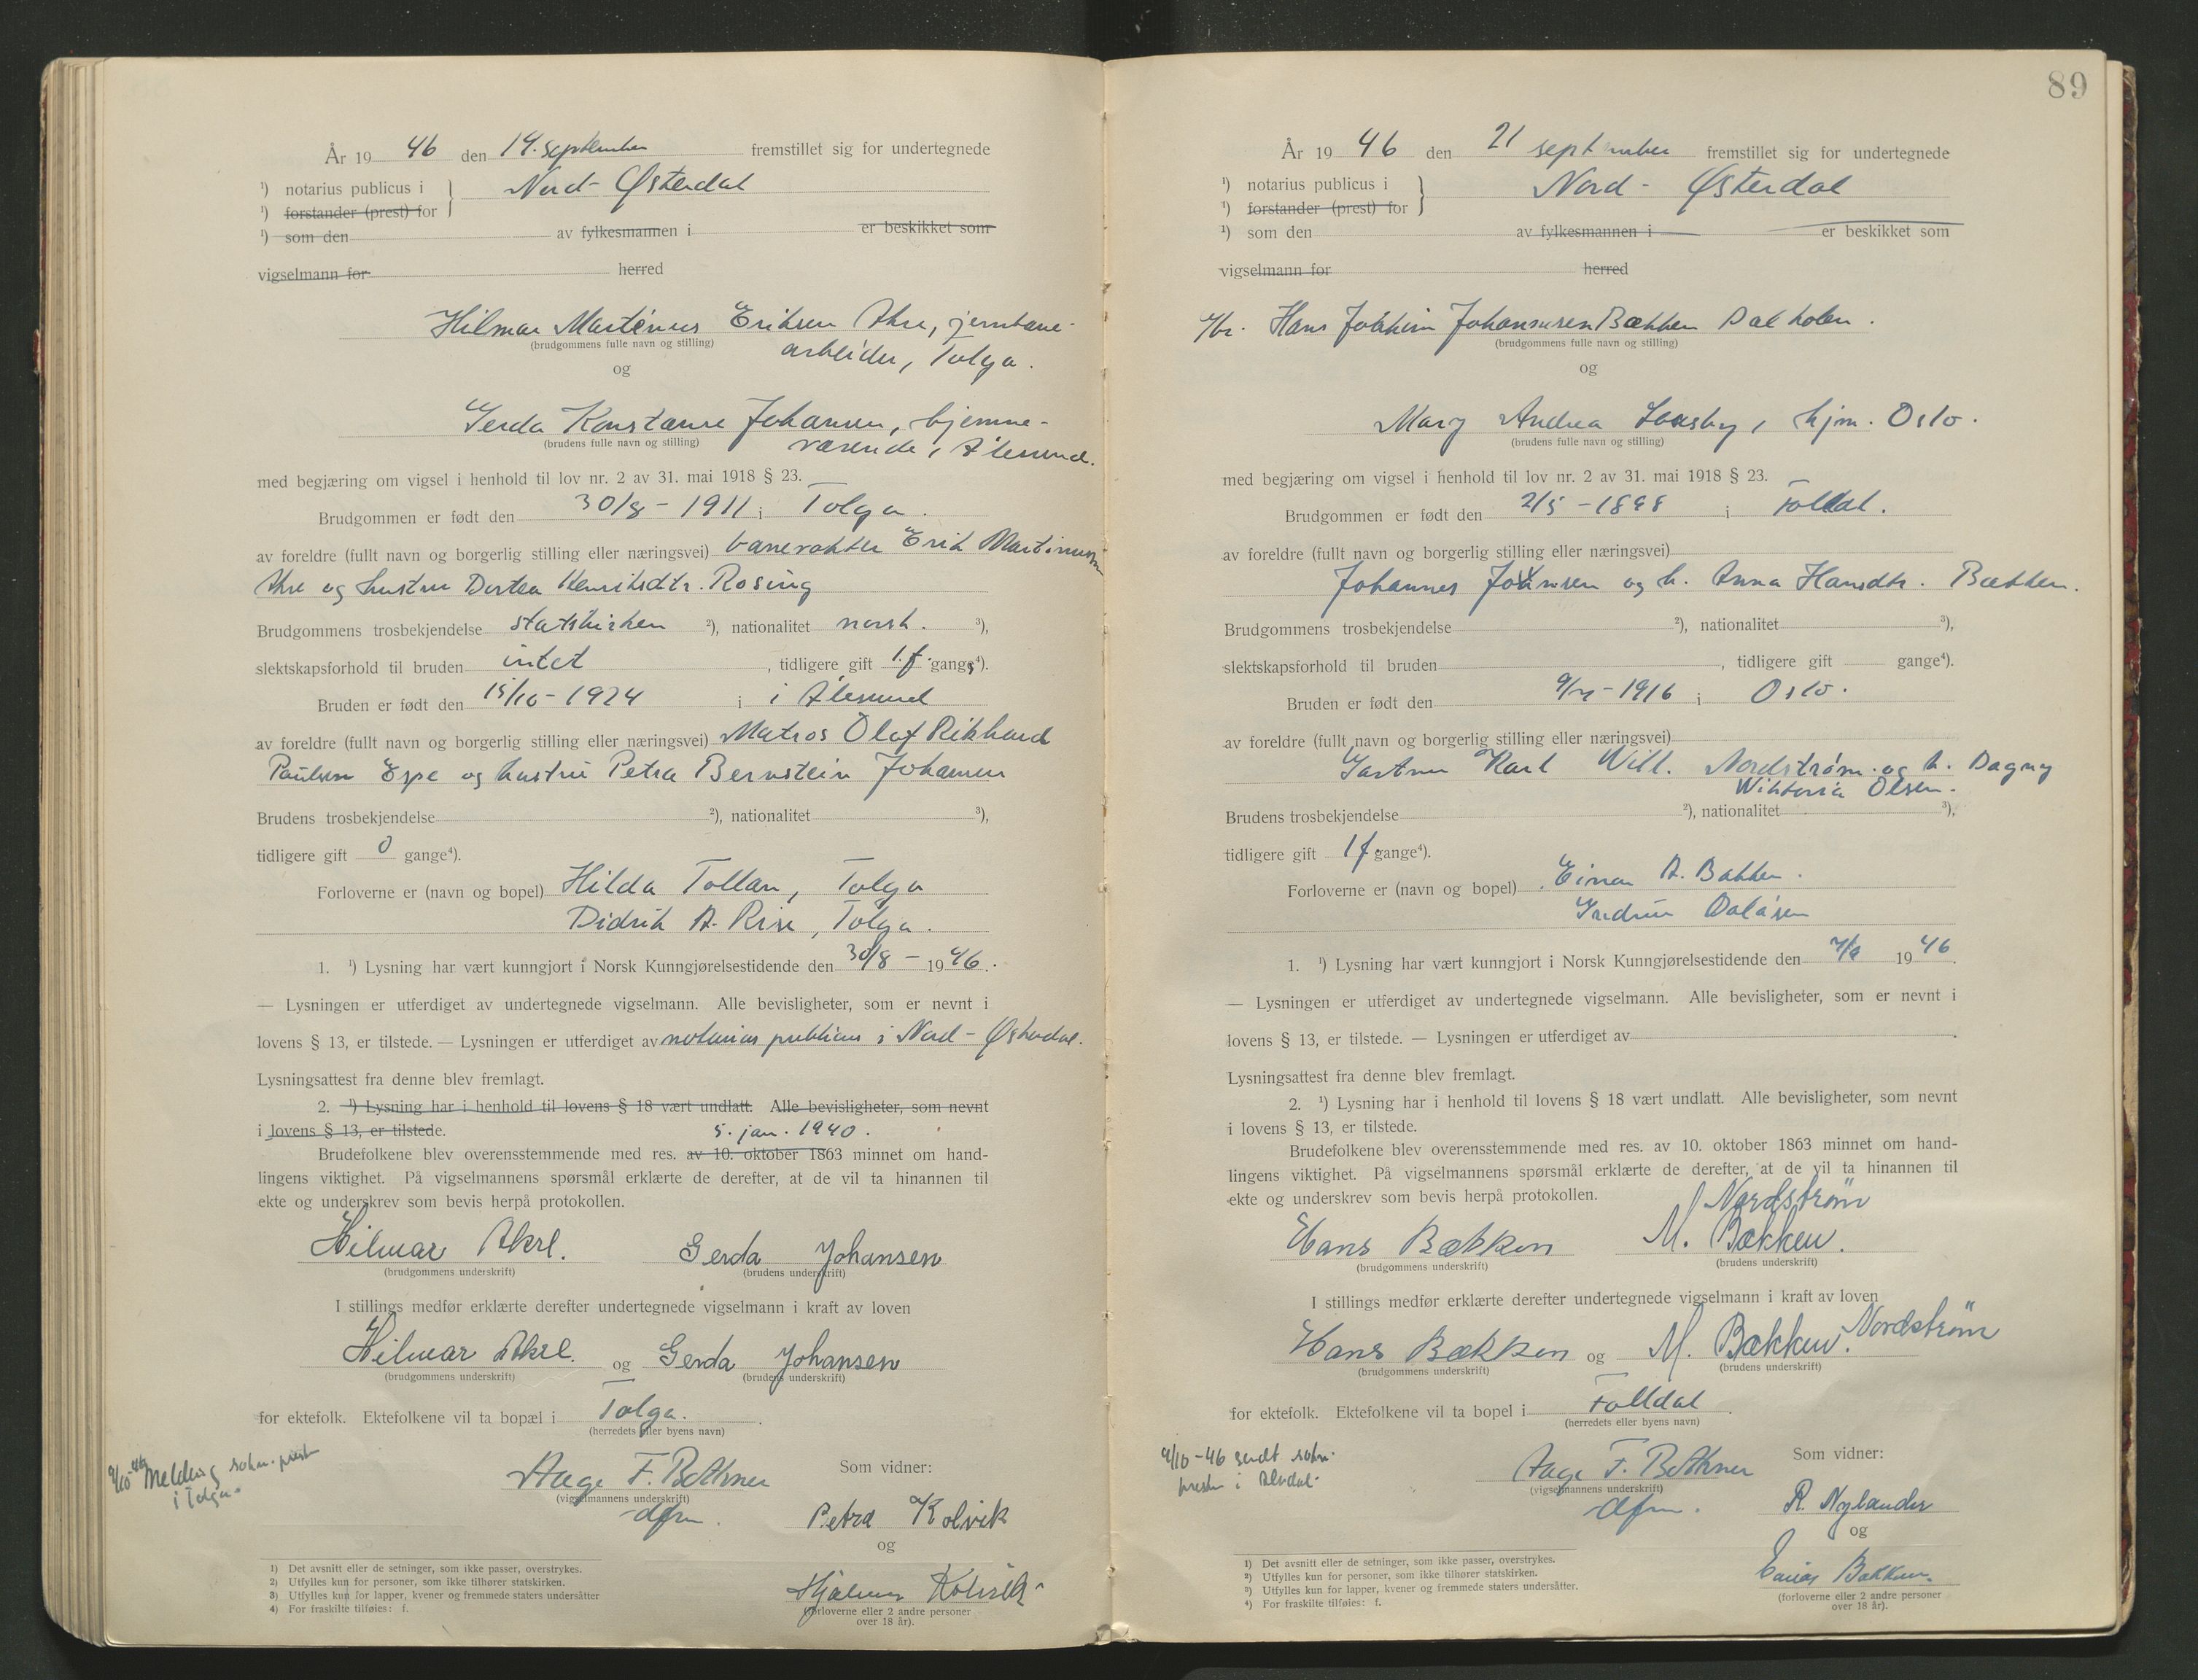 År 1946 den 14. september fremstillet sig for undertegnede
¹) notarius publicus i } Nord-Østerdal
¹) forstander (prest) for
¹) som den av fylkesmannen i er beskikket som
vigselmann for herred
Hilmar Martinus Eriksen Akre, jernbane-
(brudgommens fulle navn og stilling)
arbeider, Tolga.
og
Gerda Konstanse Johansen, hjemme-
(brudens fulle navn og stilling)
værende, Ålesund.
med begjæring om vigsel i henhold til lov nr. 2 av 31. mai 1918 § 23.
Brudgommen er født den 30/8 - 1911 i Tolga.
av foreldre (fullt navn og borgerlig stilling eller næringsvei) banevokter Erik Martinusen
Akre og hustru Dortea Henriksdtr. Rosing
Brudgommens trosbekjendelse statskirken ²), nationalitet norsk. ³),
slektskapsforhold til bruden intet, tidligere gift 1.f. gang ⁴).
Bruden er født den 15/10 - 1924 i i Ålesund
av foreldre (fullt navn og borgerlig stilling eller næringsvei) Matros Olaf Rikhard
Paulsen Espe og hustru Petra Bernstein Johansen
Brudens trosbekjendelse ²), nationalitet ³),
tidligere gift 0 gange⁴).
Forloverne er (navn og bopel) Hilda Tollan, Tolga
Didrik A. Rise, Tolga.
1. ¹) Lysning har vært kunngjort i Norsk Kunngjørelsestidende den 30/8 - 1946.
— Lysningen er utferdiget av undertegnede vigselmann. Alle bevisligheter, som er nevnt i
lovens § 13, er tilstede. — Lysningen er utferdiget av notarius publicus i Nord-Østerdal.
Lysningsattest fra denne blev fremlagt.
2. ¹) Lysning har i henhold til lovens § 18 vært undlatt. Alle bevisligheter, som nevnt
i lovens § 13, er tilstede. 5. jan. 1940.
Brudefolkene blev overensstemmende med res. av 10. oktober 1863 minnet om hand-
lingens viktighet. På vigselmannens spørsmål erklærte de derefter, at de vil ta hinannen til
ekte og underskrev som bevis herpå protokollen.
Hilmar Akre. Gerda Johansen
(brudgommens underskrift) (brudens underskrift)
I stillings medfør erklærte derefter undertegnede vigselmann i kraft av loven
Hilmar Akre. og Gerda Johansen
(brudgommens underskrift) (brudens underskrift)
for ektefolk. Ektefolkene vil ta bopæl i Tolga.
(herredets eller byens navn)
9/10-46 Melding sokn.prest
i Tolga.
Aage F. Bothner Som vidner:
(vigselmannens underskrift)
dfm. Petra Kolvik
og
Hjalmar Kolvik
(forloverne eller 2 andre personer
over 18 år).
1) Det avsnitt eller de setninger, som ikke passer, overstrykes.
2) Utfylles kun for personer, som ikke tilhører statskirken.
3) Utfylles kun for lapper, kvener og fremmede staters undersåtter
4) For fraskilte tilføies: f.
89
År 1946 den 21 september fremstillet sig for undertegnede
¹) notarius publicus i } Nord-Østerdal
¹) forstander (prest) for
¹) som den av fylkesmannen i er beskikket som
vigselmann for herred
Hans Johansen Bækken Dalholen.
(brudgommens fulle navn og stilling)
og
Mary Andrea, hjm. Oslo.
(brudens fulle navn og stilling)
med begjæring om vigsel i henhold til lov nr. 2 av 31. mai 1918 § 23.
Brudgommen er født den 2/5 - 1898 i Folldal.
av foreldre (fullt navn og borgerlig stilling eller næringsvei)
Johannes Johnsen og h. Anna Hansdtr. Bækken.
Brudgommens trosbekjendelse ²), nationalitet ³),
slektskapsforhold til bruden, tidligere gift gange⁴).
Bruden er født den - 1916 i Oslo.
av foreldre (fullt navn og borgerlig stilling eller næringsvei)
Gartner Karl Will. Nordstrøm og h. Dagny
Wiktoria Olsen.
Brudens trosbekjendelse ²), nationalitet ³),
tidligere gift 1 f gange⁴).
Forloverne er (navn og bopel) Einar A. Bakken.
Gudrun Dalåsen
1. ¹) Lysning har vært kunngjort i Norsk Kunngjørelsestidende den 1946.
— Lysningen er utferdiget av undertegnede vigselmann. Alle bevisligheter, som er nevnt i
lovens § 13, er tilstede. — Lysningen er utferdiget av
Lysningsattest fra denne blev fremlagt.
2. ¹) Lysning har i henhold til lovens § 18 vært undlatt. Alle bevisligheter, som nevnt
i lovens § 13, er tilstede.
Brudefolkene blev overensstemmende med res. av 10. oktober 1863 minnet om hand-
lingens viktighet. På vigselmannens spørsmål erklærte de derefter, at de vil ta hinannen til
ekte og underskrev som bevis herpå protokollen.
Nordstrøm
Hans Bækken M. Bækken.
(brudgommens underskrift) (brudens underskrift)
I stillings medfør erklærte derefter undertegnede vigselmann i kraft av loven
Hans Bækken og M. Bækken. Nordstrøm
(brudgommens underskrift) (brudens underskrift)
for ektefolk. Ektefolkene vil ta bopel i Folldal.
(herredets eller byens navn)
9/10-46 sendt sokn.
presten i Alvdal.
Aage F. Bothner Som vidner:
(vigselmannens underskrift)
dfm. R. Nylander
og
Einar Bakken.
(forloverne eller 2 andre personer
over 18 år).
¹) Det avsnitt eller de setninger, som ikke passer, overstrykes.
²) Utfylles kun for personer, som ikke tilhører statskirken.
³) Utfylles kun for lapper, kvener og fremmede staters undersåtter.
⁴) For fraskilte tilføies: f.